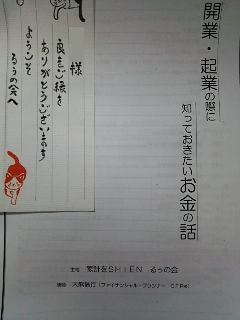 開業・起業の際に
知っておきたいお金の話
家計をSHIEN るぅの会
講師 (ファイナンシャル・プランナー CFP®)
様
良きご縁を
ありがとうございます
ようこそ
るぅの会へ